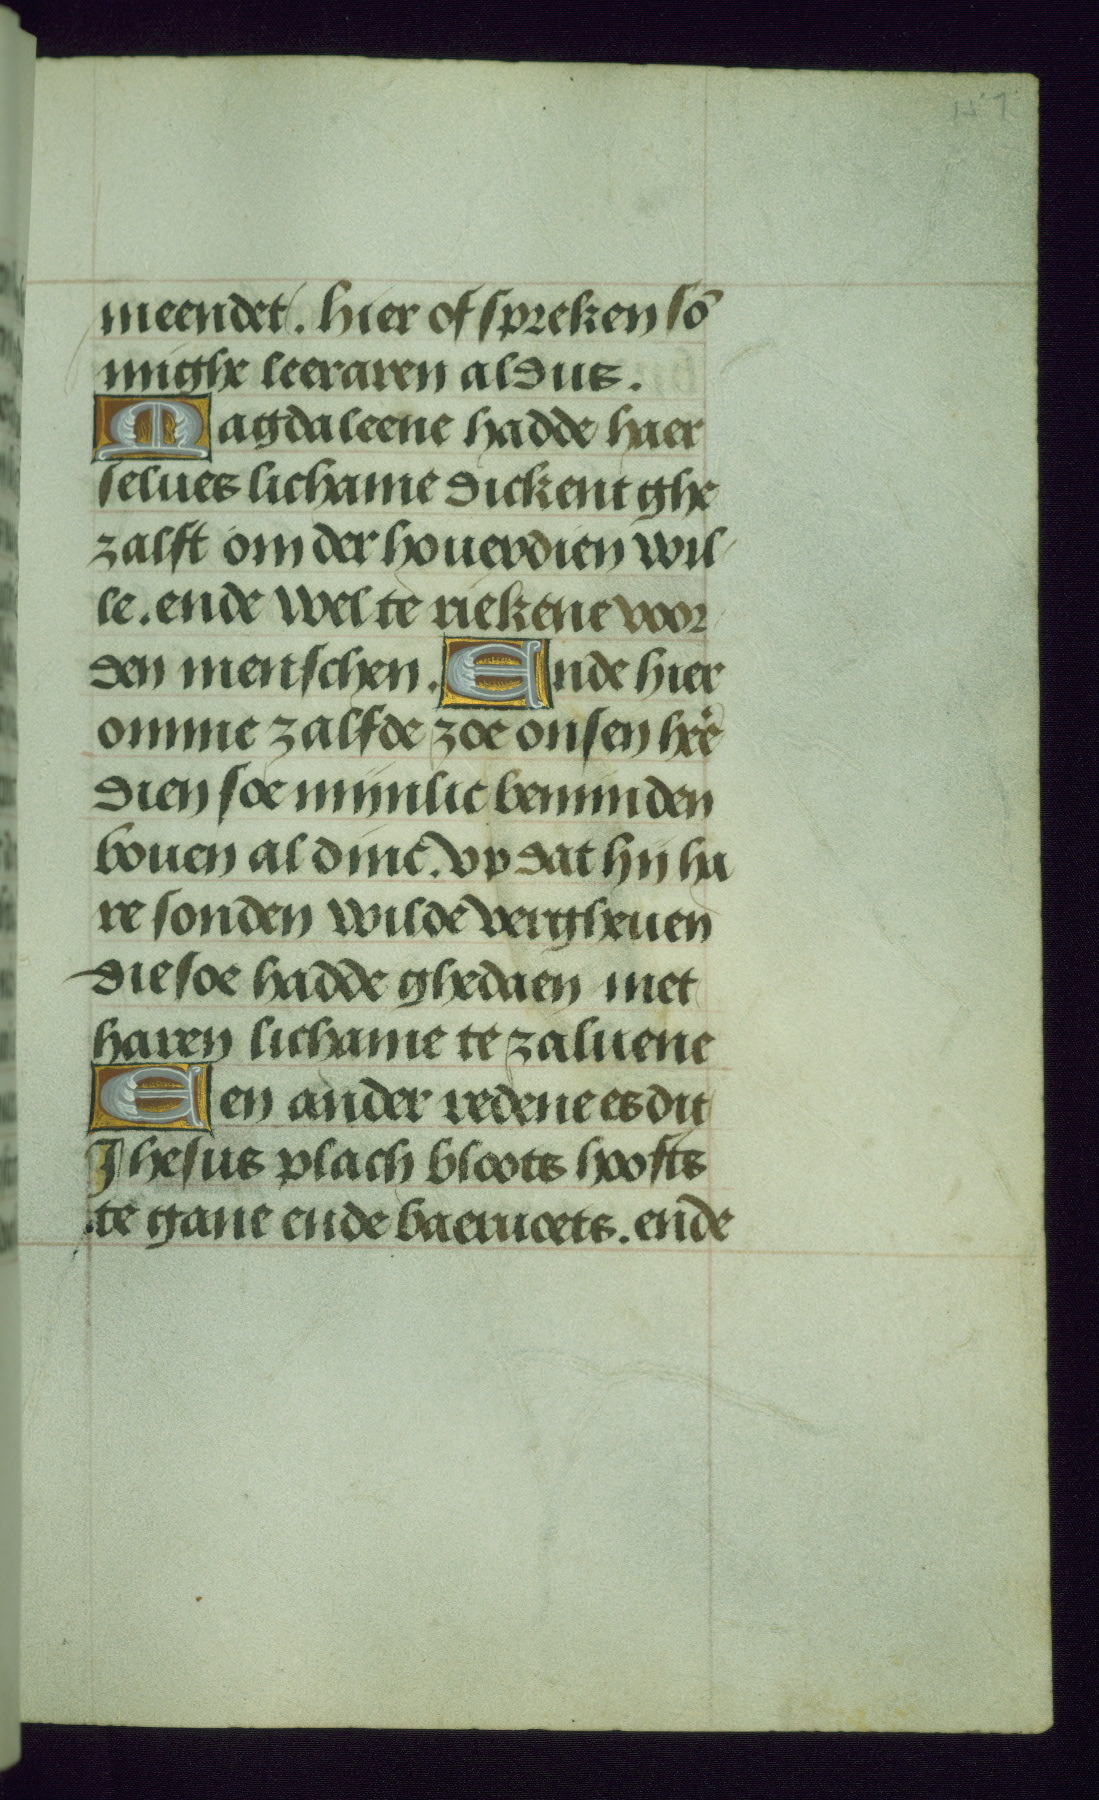 meendet. Hier of spreken sō
mighe leeraren aldus.
Magdaleene hadde haer
selues lichame dickent ghe
zalft om der houerdien wil
le. ende wel te riekene voor
den menschen. Ende hier
omme zalfde zoe onsen heē
dien soe mijnlic beminden
bouen al dinc. vp dat hij ha
re sonden wilde vergheuen
die soe hadde ghedaen met
haren lichame te zaluene
Een ander redene es dit
Jhesus plach bloots hoofts
te gane ende baeruoets. ende